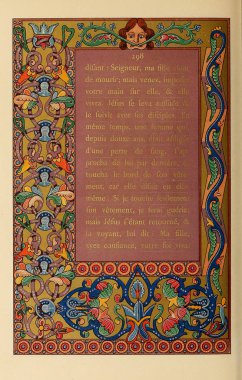 198
disant : Seigneur, ma fille vient
de mourir; mais venez, imposez
votre main sur elle, & elle
vivra. Jésus se leva aussitôt &
le suivit avec ses disciples. En
même temps, une femme qui
depuis douze ans, était affligée
d'une perte de sang, s'ap-
procha de lui par derrière, &
toucha le bord de son vête-
ment, car elle disait en elle-
même : Si je touche seulement
son vêtement, je serai guérie;
mais Jésus s'étant retourné, &
la voyant, lui dit : Ma fille,
ayez confiance, votre foi vous